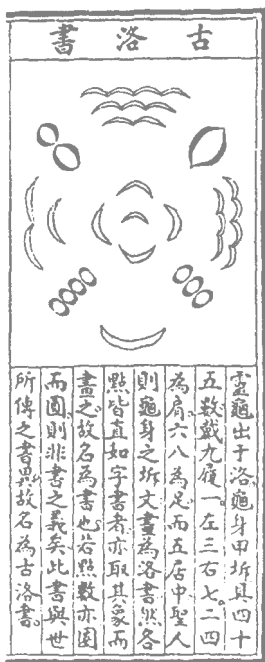 古洛書
靈龜出于洛龜身甲坼具四十
五數戴九履一左三右七二四
為肩六八為足而五居中聖人
則龜身之坼文畫為洛書然各
點皆直如字書者亦取其象而
畫之故名為書也若點數亦圓
而圓則非書之義矣此書與世
所傳之書異故名為古洛書